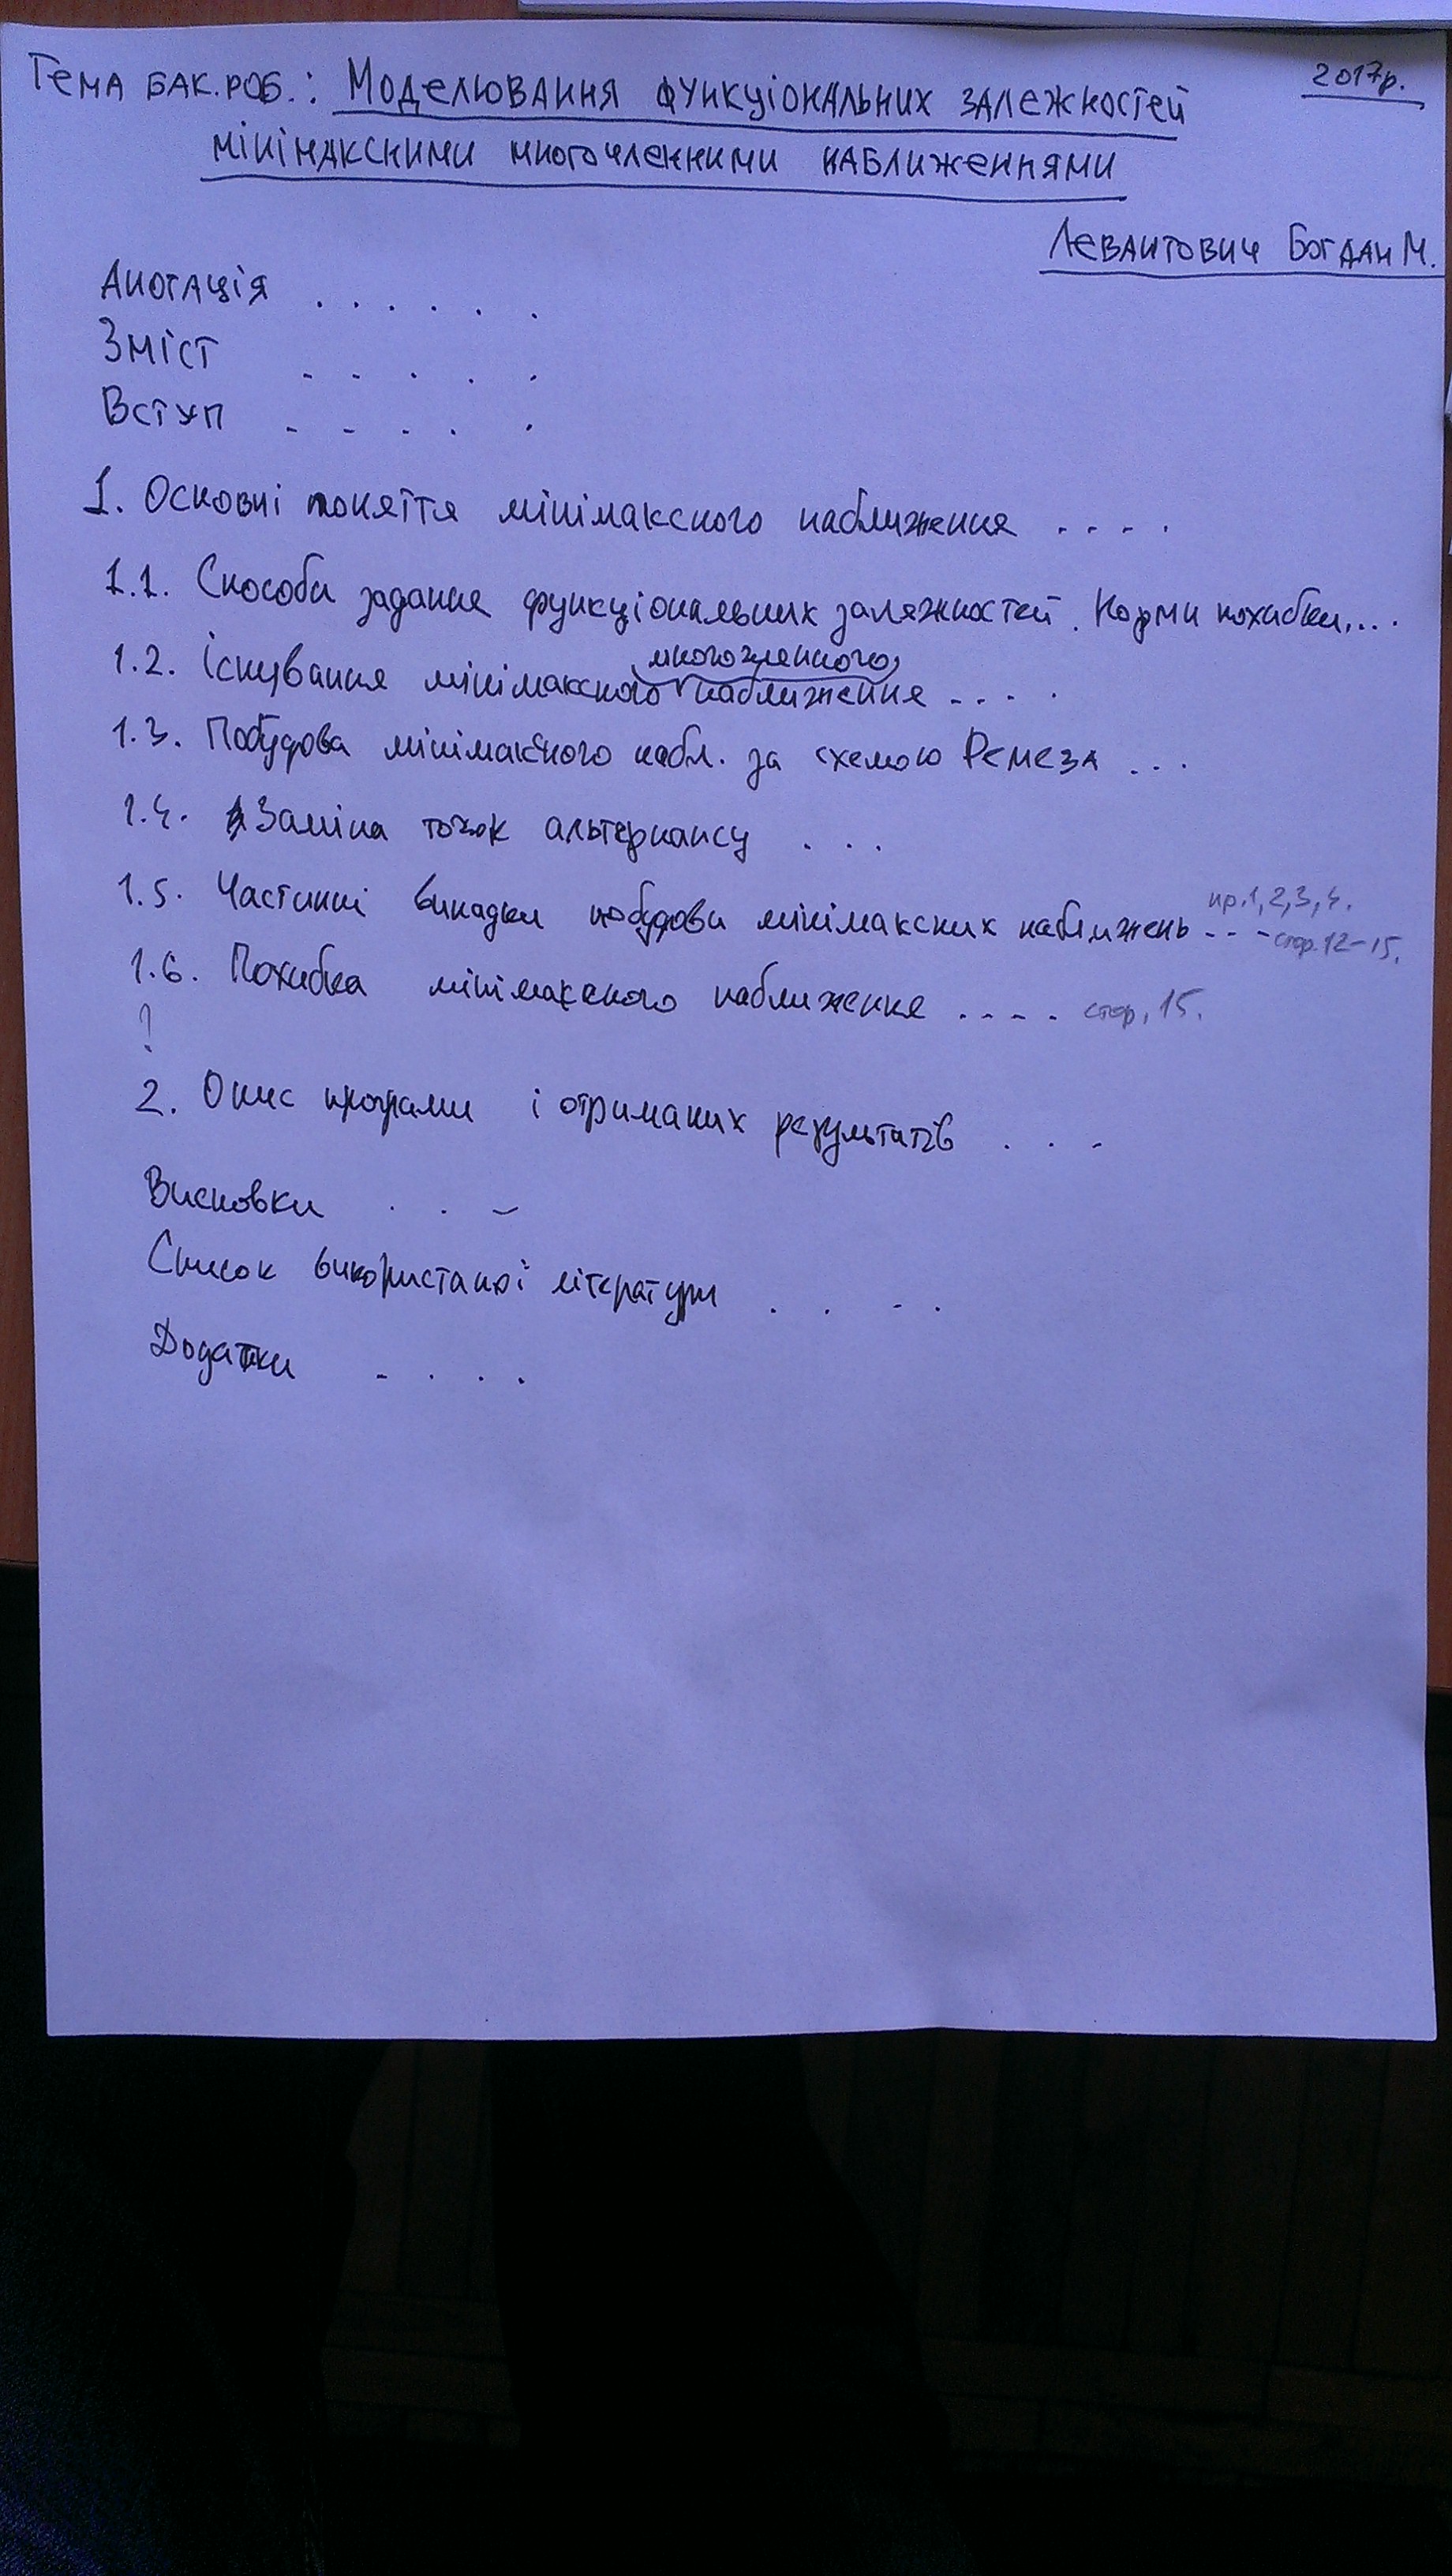 Тема бак.роб.: Моделювання функціональних залежностей
2017р.
мінімаксними многочленними наближеннями
Левантович Богдан М.
Анотація . . . . . .
Зміст . . . . .
Вступ . . . . .
1. Основні поняття мінімаксного наближення . . . .
1.1. Способи задання функціональних залежностей. Норми похибки....
многочленного
1.2. Існування мінімаксного наближення . . . .
1.3. Побудова мінімаксного набл. за схемою Ремеза . . .
1.4. Заміна точок альтернансу . . .
1.5. Частинні випадки побудови мінімаксних наближень . . . пр.1,2,3,4.
стор.12-15.
1.6. Похибка мінімаксного наближення . . . . стор.15.
?
2. Опис програми і отриманих результатів . . .
Висновки . . .
Список використаної літератури . . . .
Додатки . . . .